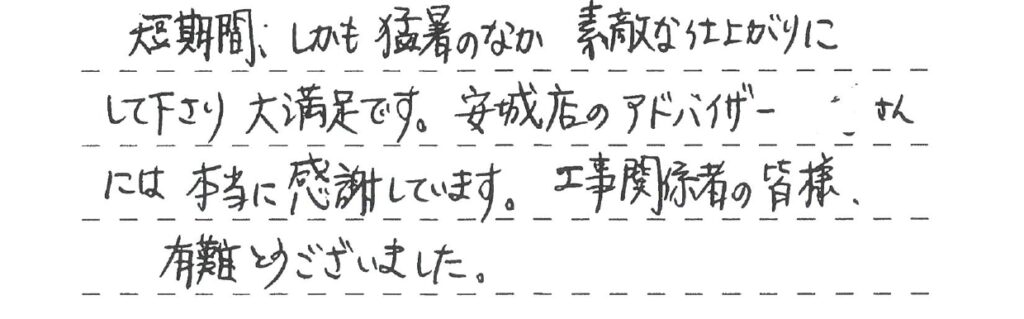 短期間、しかも猛暑のなか 素敵な仕上がりに
して下さり 大満足です。安城店のアドバイザー さん
には 本当に感謝しています。 工事関係者の皆様、
有難とうございました。